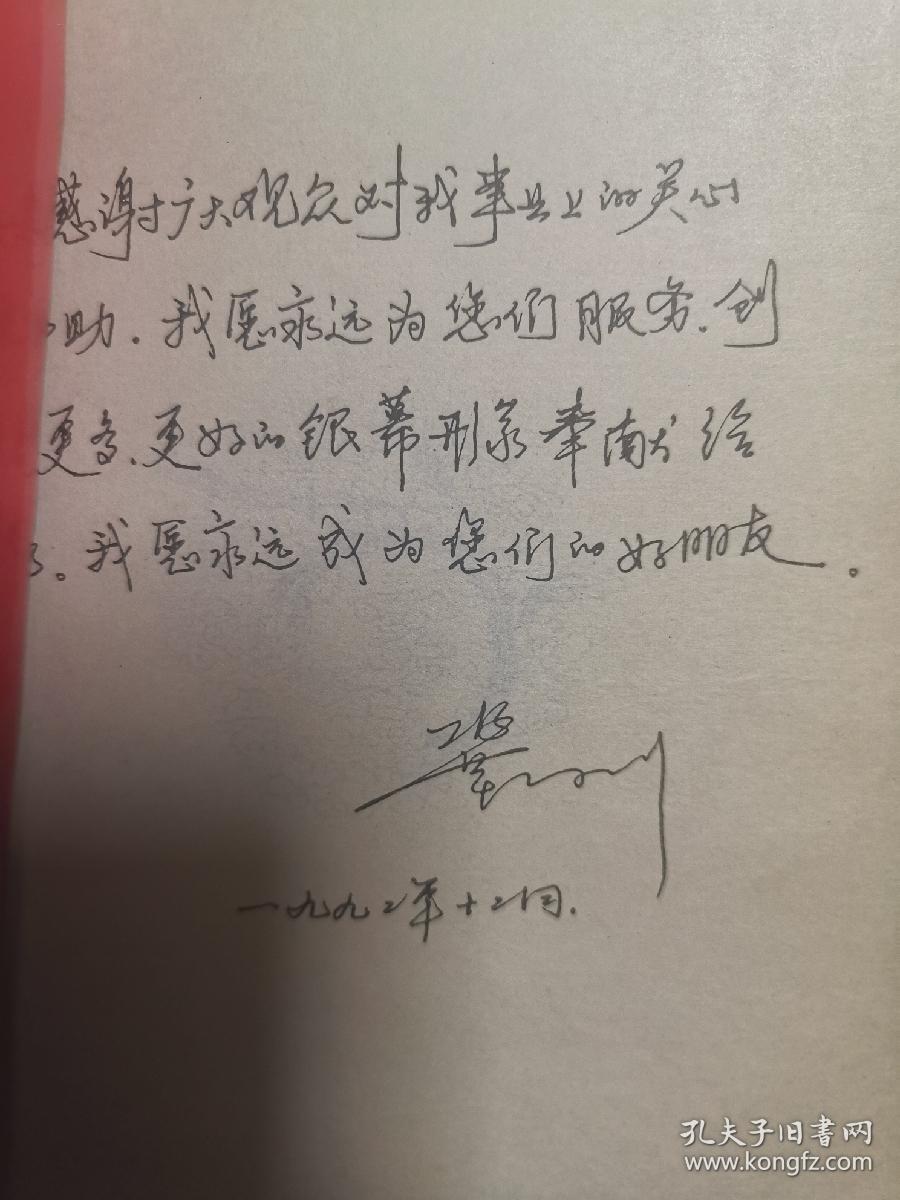 感谢广大观众对我事业上的关心
助.我愿永远为您们服务.创
更多、更好的银幕形象奉献给
。我愿永远成为您们的好朋友。
一九九二年十二月.
孔夫子旧书网
www.kongfz.com